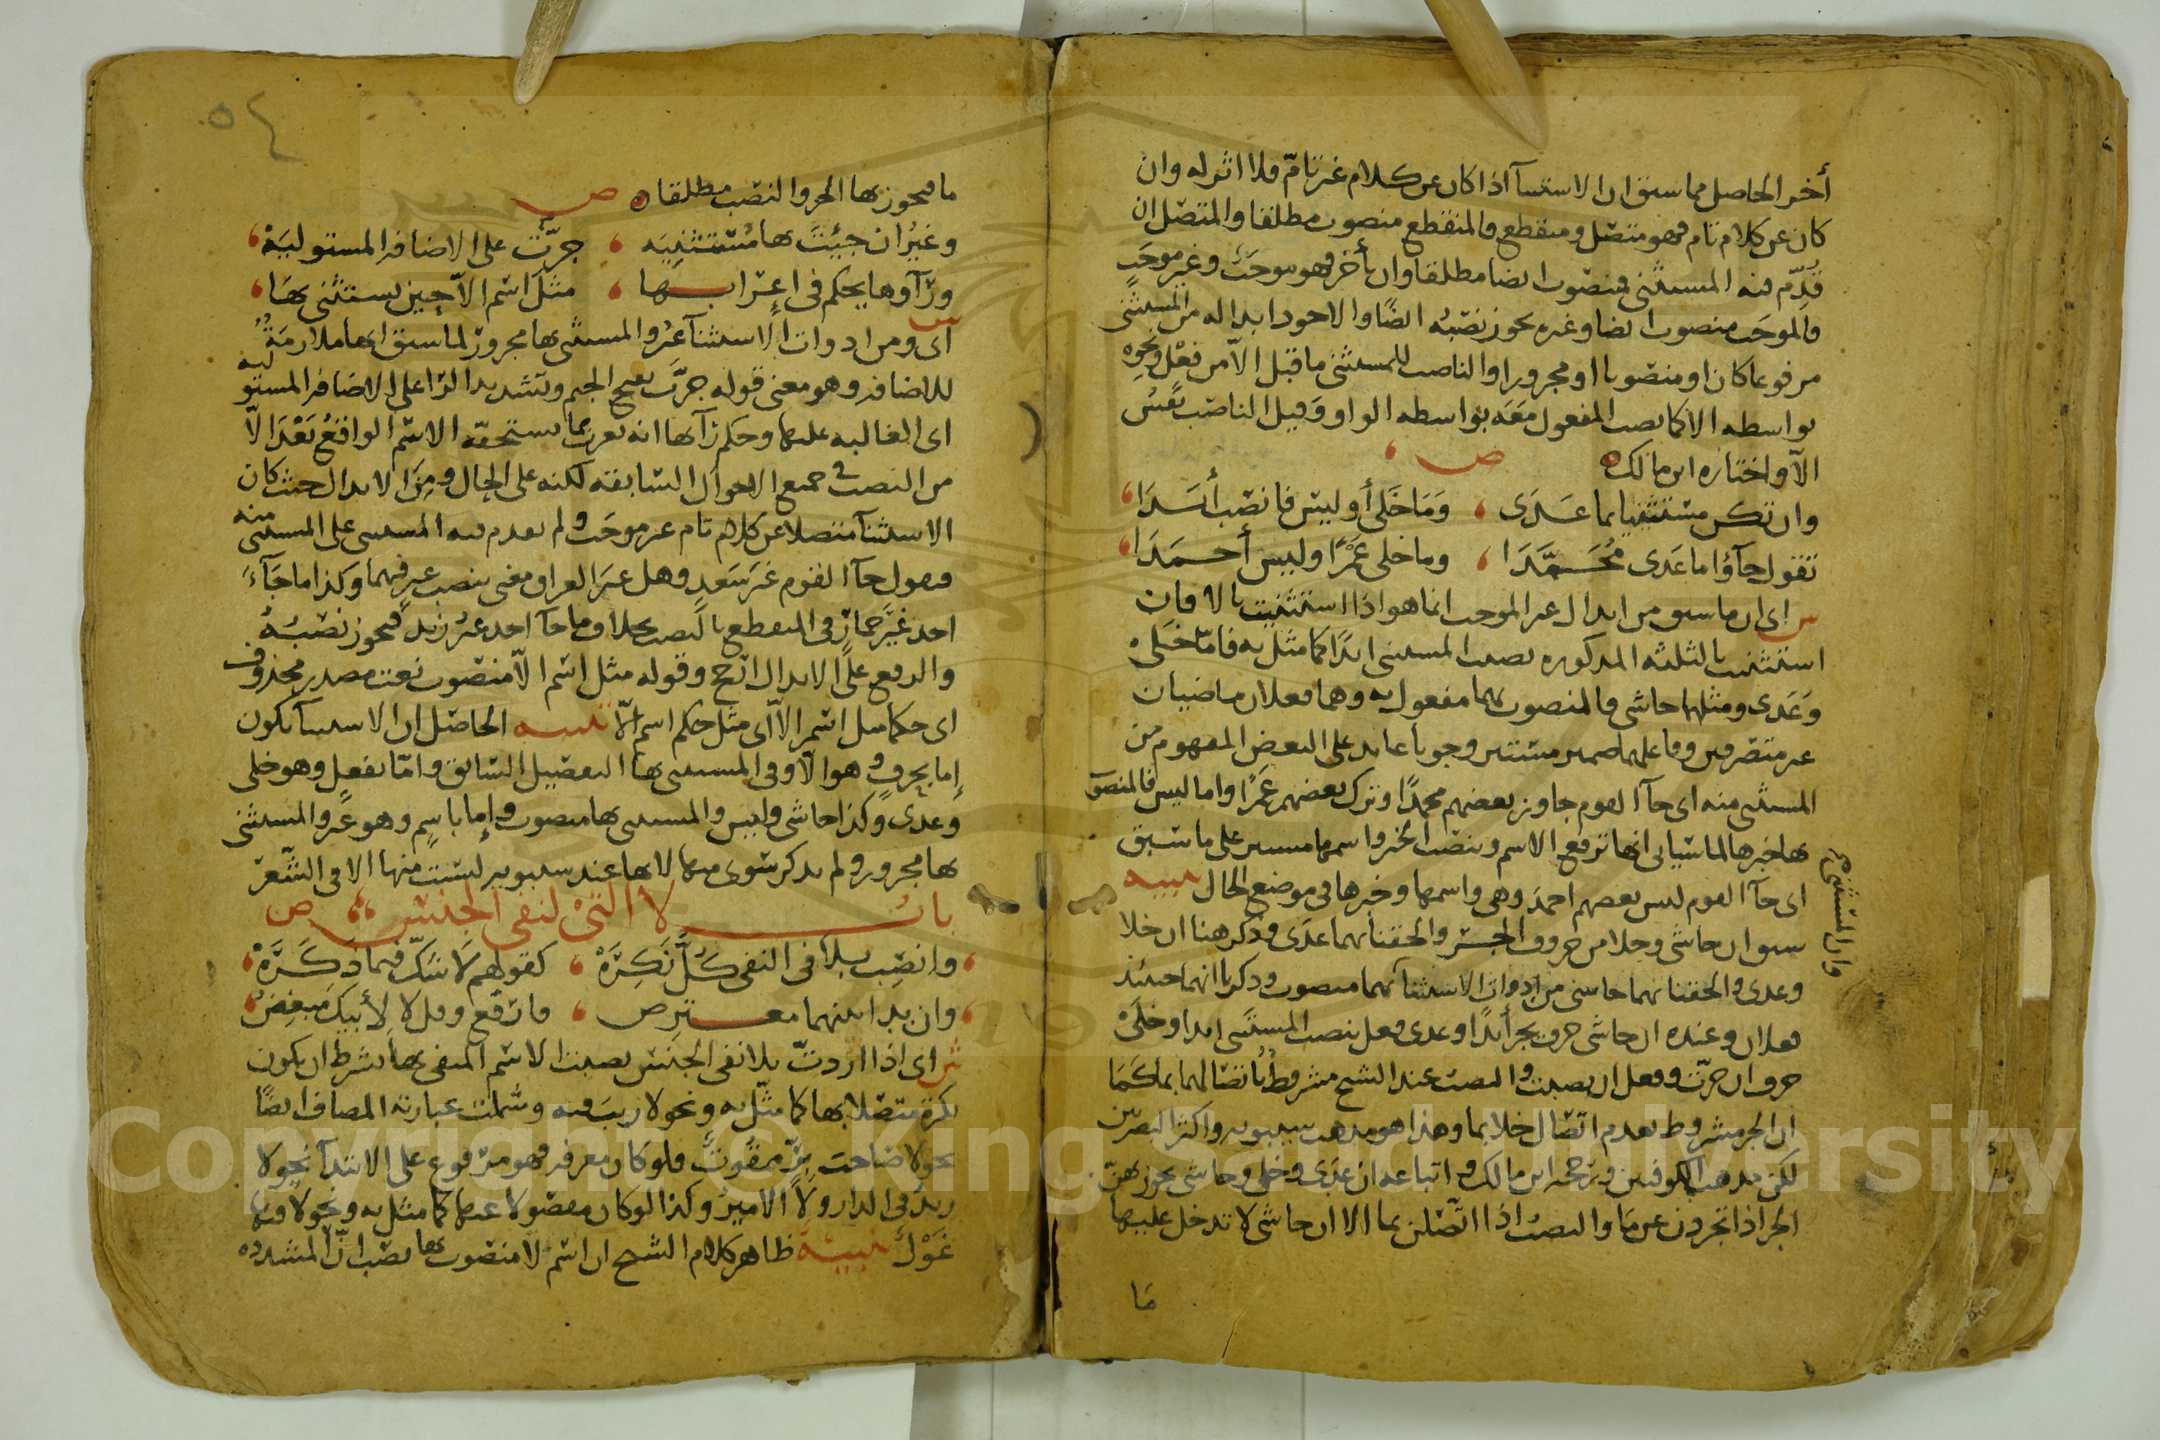 أخر الحاصل مما سبق ان الاستثنآ اذا كان عن كلام غير تامّ فلا اثر له وان
كان عن كلام تام فهو متصل ومنقطع فالمنقطع منصوب مطلقا والمتصل ان
قُدِّم فيه المستثنى فنصوب ايضا مطلقا وان أخر فهو موجَب وغير موجَب
فالموجَب منصوب ايضا وغيره يجوز نصبُه ايضًا والاجود ابداله من المستثنى
مرفوعا كان او منصوبا او مجرورا والناصب للمستثنى ما قبل الاّ من فعْل ونحوِه
بواسطه الا كما نصب المفعول معَه بواسطه الواو وقيل الناصب نفسُ
الاّ واختاره ابن مالك ص
وان تكن مستثنيا بما عَدَى ، وَمَا خَلى أو ليس فانصب أسَدَا
تقول جآؤا ما عَدى مُحَمَّدَا ، وما خلى عَمْرًا وليس أحمَدَا
س اى ان ما سبق من ابدال غير الموجب انما هو اذا استثنيت بالا فان
استثنيت بالثلثه المذكوره نصبت المستثنى ابدًا كما مثل به فامّا خلى
وَعَدَى ومثلهما حاشى فالمنصوب بهما مفعول به وهما فعلان ماضيان
غير متصرفين وفاعلهما ضمير مستتر وجوبا عايد على البعض المفهوم من
المستثنى منه اى جآ القوم جاوز بعضهم محمدًا وترك بعضهم عَمْرًا واما ليس فالمنصوب
بها خبرها لما سياتى انها ترفع الاسم وتنصب الخبر واسمها مستتر على ما سبق
اى جآ القوم ليس بعضهم احمدَ وهى واسمها وخبرها فى موضع الحال تنبيه
سبق ان حاشى وخلا من حروف الجَرّ والحقنا بهما عدَى وذكر هنا ان خلا
وعدى والحقنا بهما حاشى من ادوات الاستثنآ بهما منصوب وذكرنا انهما حينئذ
فعلان وعنده ان حاشى حرف يجر أبدًا وعدى فعل ينصب المستثنى ابدا وخلىَ
حرف ان جرّت وفعل ان نصبت والنصب عند الشيخ مشروطُ باتصالهما بما كما
ان الجر مشروط بعدم اتصال خلا بما وهذا هو مذهب سيبويه واكثر البصريّين
لكن مذهب الكوفيين ورجحه ابن مالك واتباعه ان عدَى وخلى وحاشى يجوز بهنّ
الجر اذا تجردن عن مَا والنصبُ اذا اتّصلن بما الا ان حاشى لا تدخل عليها
مَا
٥٤
ما فيجوز بها الجر والنصب مطلقا ص
وغيرُ ان جيئتَ بها مُسْتثنِيَه ، جرّت على الاضافه المستوليَهْ
ورآوها يحكم فى اعْرابها ، مثلَ اسْم الاّ حين يستثنى بهَا
س اى ومن ادوات الاستثنآ غيرُ والمستثنى بها مجرورٌ لما سبق انها ملازمَةُ
للاضافه وهو معنى قوله جرّت بفتح الجيم وتشديد الرّا على الاضافه المستوليه
اى الغالبه عليها وحكم رآئها انه تعرب بما يستحقه الاسْم الواقعُ بَعْدَ الاّ
من النصب فى جميع الاحوال السّابقه لكنه على الحال ومِنَ الابدال حيث كان
الاستثنآ متصلا عن كلام تام غير موجَب ولم يقدم فيه المستثنى على المستثنى منه
فتقول جآ القوم غيرَ سَعدٍ وهل غيرَ العراق مغنى بنصب غير فيهما وكذا ما جَآءَ
احد غَيْرَ حمارٍ فى المنقطع بالنصب بخلاف ما جآ احد غيرُ زيد فيجوز نصبُهُ
والرفع على الابدال ارجح وقوله مثل اسم الاّ منصوب نعت مصدر محذوف
اى حكما مثل اسْم الاّ اى مثل حكم اسم الاّ تنبيه الحاصل ان الاستثنآ يكون
إما بحرف وهو الاّ وفى المستثنى بها التفصيل السّابق وامّا بفعل وهو خلى
وعدَى وكذا حاشى وليس والمستثنى بها منصوب وإما باسمٍ وهو غير والمستثنى
بها مجرور ولم يذكر سوى منها لانها عند سيبويه ليست منها الا فى الشّعر
بابُ لا التىْ لنفى الجنس ص
وانصِب بلا فى النفى كلَّ نَكِرَهْ ، كقولهم لاَ شَكّ فيما ذَكَرَهْ
وان بدا بينهما معترِض ، فارفع وقل لا لأبيك مبغِضُ
ش اى اذا اردتَّ بلا نفى الجنس نصبت الاسْم المنفى بها بشرط ان يكون
نكرة متصلا بها كما مثّل به ونحو لا ريبَ فيه وشملت عبارته المضاف ايضًا
نحو لا صَاحبَ بِرٍّ ممقُوتٌ فلو كان معرفه فهو مرفوع على الابتدآ نحو لا
زيدٌ فى الدار ولا الاميرُ وكذا لو كان مفصولا عنها كما مثل به ونحو لا فيها
غَوْلٌ تنبيه ظاهر كلام الشيخ ان اسم لا منصوب بها نصب انّ المشدده
Copyright © King Saud University